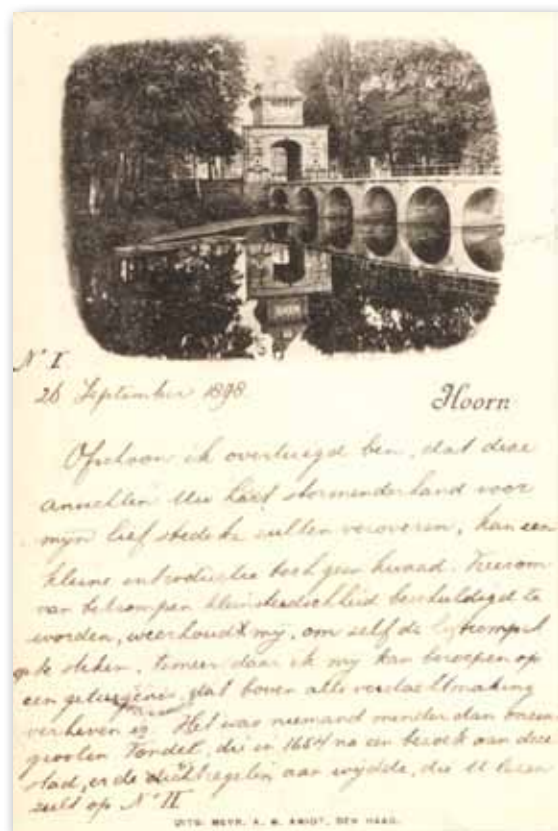 No I
26 September 1898
Hoorn
Ofschoon ik overtuigd ben, dat deze
ansichten Uw hart stormenderhand voor
mijn lief stedeke zullen veroveren, kan een
kleine introductie toch geen kwaad. Vrees om
van bekrompen kleinsteedschheid beschuldigd te
worden, weerhoudt mij, om zelf de
te steken, temeer daar ik mij kan beroepen op
een getuigenis, dat boven alle verdachtmaking
verheven is. Het was niemand minder dan onzen
grooten Vondel, die in 1654 na een bezoek aan deze
stad, er de dichtregelen aan wijdde, die U lezen
zult op No II
UITG. MEVR. A. M. AMIOT, DEN HAAG.